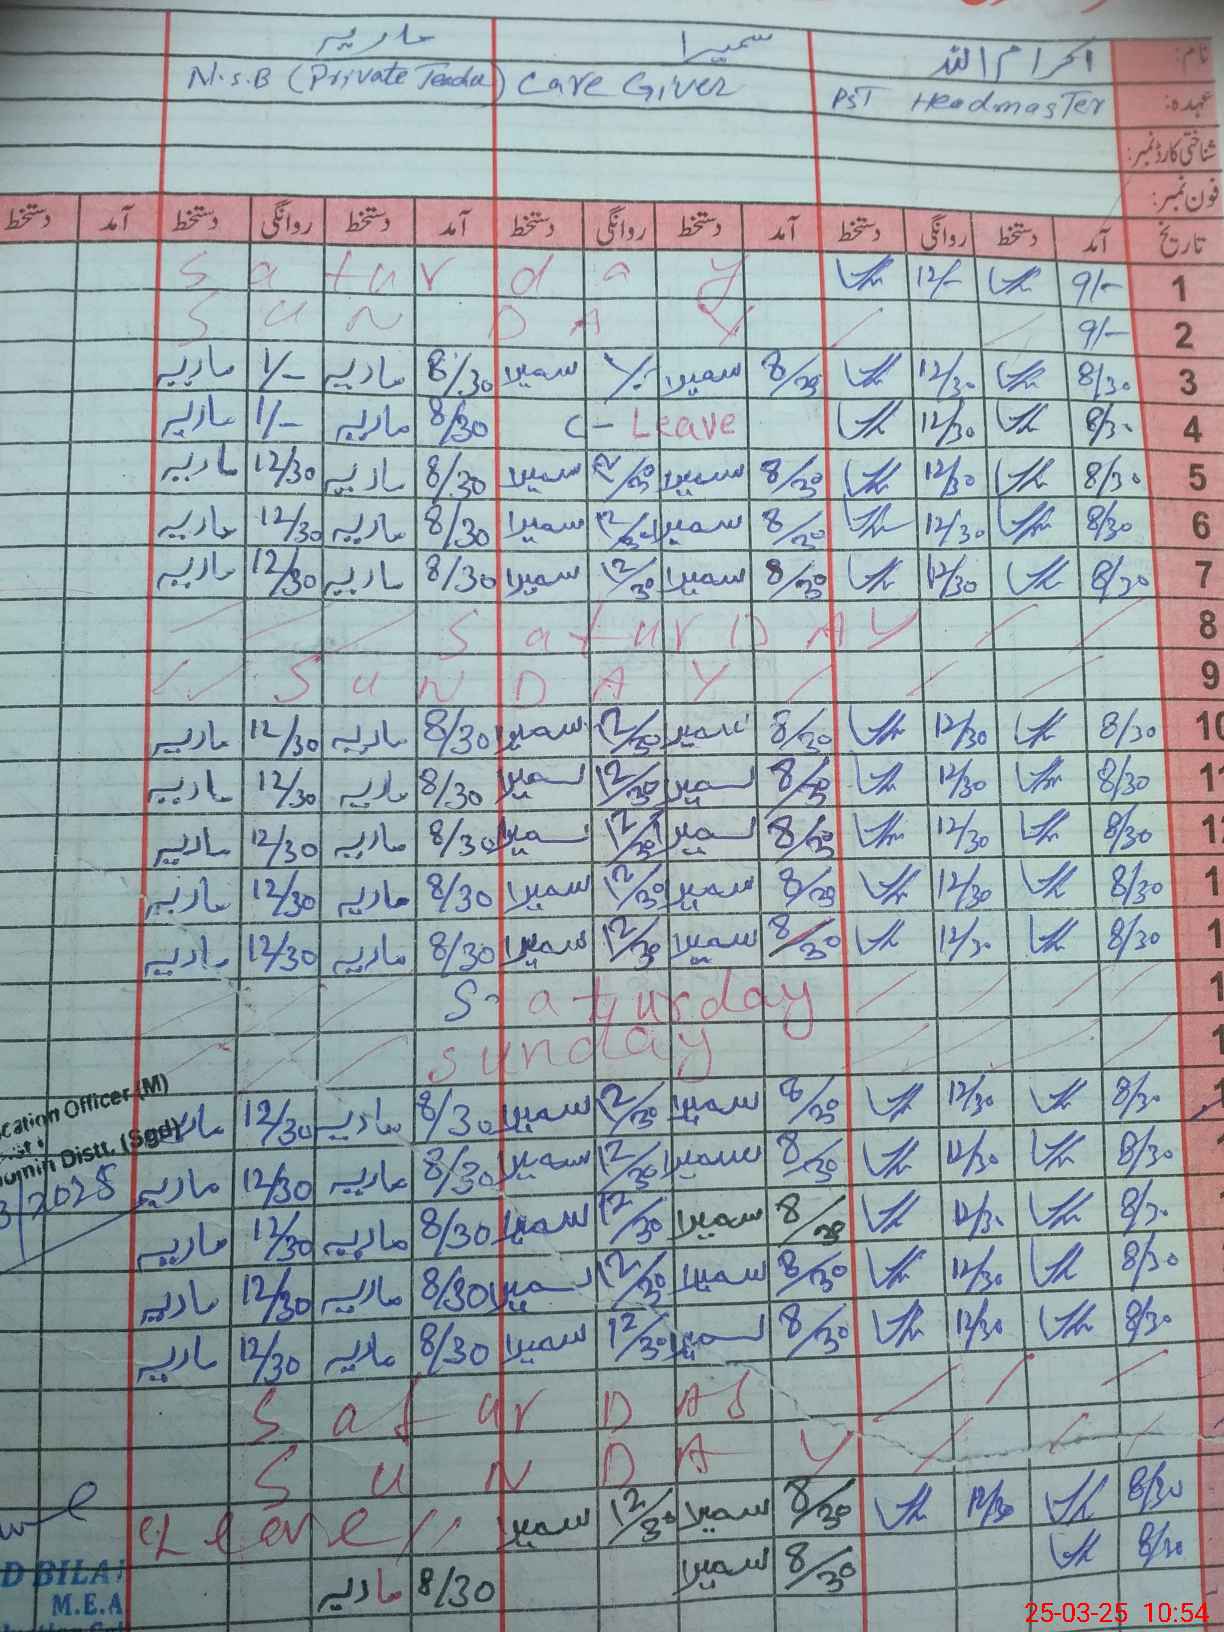 نام: اکرام اللہ سمیرا ماریہ
عہدہ: PST Headmaster Care Giver N.S.B (Private Teacher)
شناختی کارڈ نمبر:
فون نمبر:
تاریخ آمد دستخط روانگی دستخط آمد دستخط روانگی دستخط آمد دستخط روانگی دستخط آمد دستخط
1 9/- 12/- Saturday
2 9/- SUNDAY
3 8/30 12/30 8/30 سمیرا 1/- سمیرا 8/30 ماریہ 1/- ماریہ
4 8/30 12/30 C-Leave 8/30 ماریہ 1/- ماریہ
5 8/30 12/30 8/30 سمیرا 12/30 سمیرا 8/30 ماریہ 12/30 ماریہ
6 8/30 12/30 8/30 سمیرا 12/30 سمیرا 8/30 ماریہ 12/30 ماریہ
7 8/30 12/30 8/30 سمیرا 12/30 سمیرا 8/30 ماریہ 12/30 ماریہ
8 SaturDAY
9 SUNDAY
10 8/30 12/30 8/30 سمیرا 12/30 سمیرا 8/30 ماریہ 12/30 ماریہ
1 8/30 12/30 8/30 سمیرا 12/30 سمیرا 8/30 ماریہ 12/30 ماریہ
12 8/30 12/30 8/30 سمیرا 12/30 سمیرا 8/30 ماریہ 12/30 ماریہ
1 8/30 12/30 8/30 سمیرا 12/30 سمیرا 8/30 ماریہ 12/30 ماریہ
1 8/30 12/30 8/30 سمیرا 12/30 سمیرا 8/30 ماریہ 12/30 ماریہ
1 Saturday
1 sunday
1 8/30 12/30 8/30 سمیرا 12/30 سمیرا 8/30 ماریہ 12/30
cation Officer (M)
Distt. (Sgd)
8/30 12/30 8/30 سمیرا 12/30 سمیرا 8/30 ماریہ 12/30 ماریہ
3/2025
8/30 12/30 8/30 سمیرا 12/30 سمیرا 8/30 ماریہ 12/30 ماریہ
8/30 12/30 8/30 سمیرا 12/30 سمیرا 8/30 ماریہ 12/30 ماریہ
8/30 12/30 8/30 سمیرا 12/30 سمیرا 8/30 ماریہ 12/30 ماریہ
SaturDAY
SUNDAY
8/30 12/30 8/30 سمیرا 12/30 سمیرا Leave
8/30 8/30 سمیرا 8/30 ماریہ
D BILA
M.E.A
25-03-25 10:54